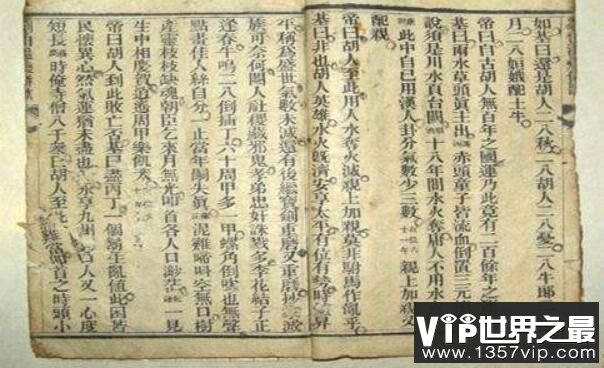 如基曰還是胡人二八秋二八胡人二八憂二八牛郎
月二八姮娥配土牛
帝曰自古胡人無百年之國運乃此竟有二百餘年之
基曰雨水草頭真主出赤頭童子皆流血倒置三元
說須是川水頁台闕十八年間水火奪庸人不用水
此中自已用漢人卦分氣數少三數親上加親又
配親
帝曰胡人至此用人水奪火滅親上加親莫非駙馬作亂乎
基曰非也胡人英雄水火既濟安享太平有位有勢時昇
平稱為盛世氣數未滅還有後繼寶劍重磨又重磨抄滅
族可奈何閹人社稷藏邪鬼孝弟忠奸誅戮多李花結子正
逢春牛鳴二八倒插丁六十周甲多一甲螺角倒吹也無聲
點畫佳人絲自分一止當年嗣失真泥雞啼叫空無口樹
產靈枝枝缺魂朝臣乞來月無光叩首各人口渺茫一見
生中相慶賀逍遙周甲樂飢
帝曰胡人到此敗亡否基曰盡丙丁一個胡生亂值此困苦
民懷異心然氣運猶未盡也永享九州口人又一心度
短長時俺寺僧八千眾曰胡人至此之時頭小
VIP世界之最
www.1357vip.com